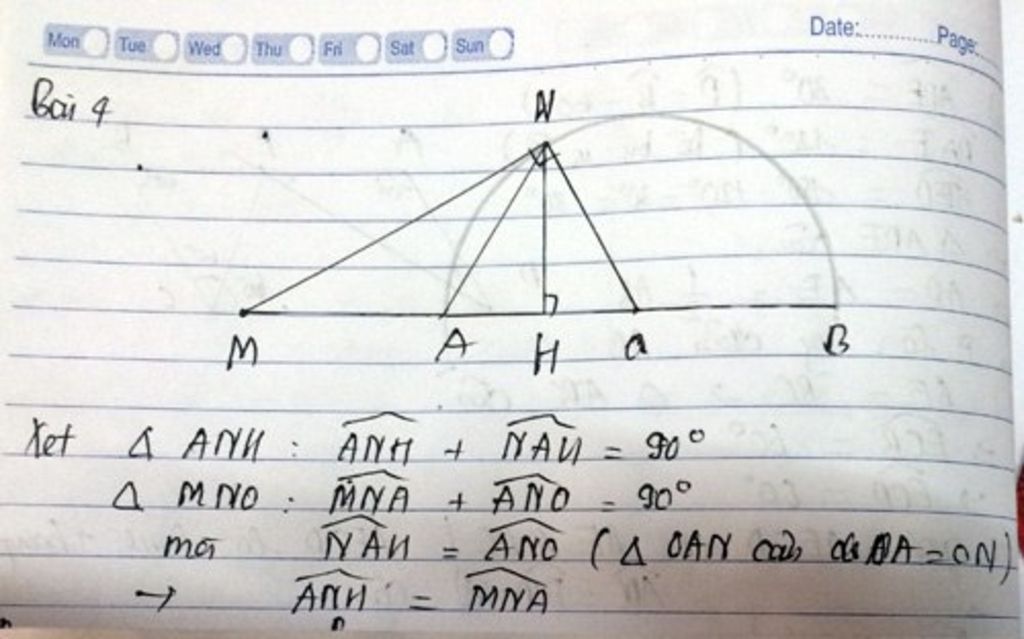 Mon Tue Wed Thu Fri Sat Sun Date:............ Page:
Bài 4
N
M A H O B
Xét Δ ANH : ANH + NAH = 90°
Δ MNO : MNA + ANO = 90°
mà NAH = ANO (Δ OAN cân do OA = ON)
→ ANH = MNA